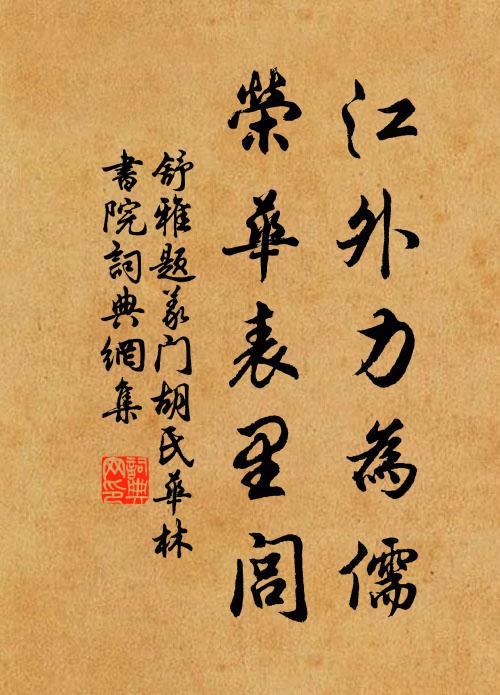 江外力為儒
榮華表里閭
舒雅題義門胡氏華林
書院詞典網集
詞典
网印